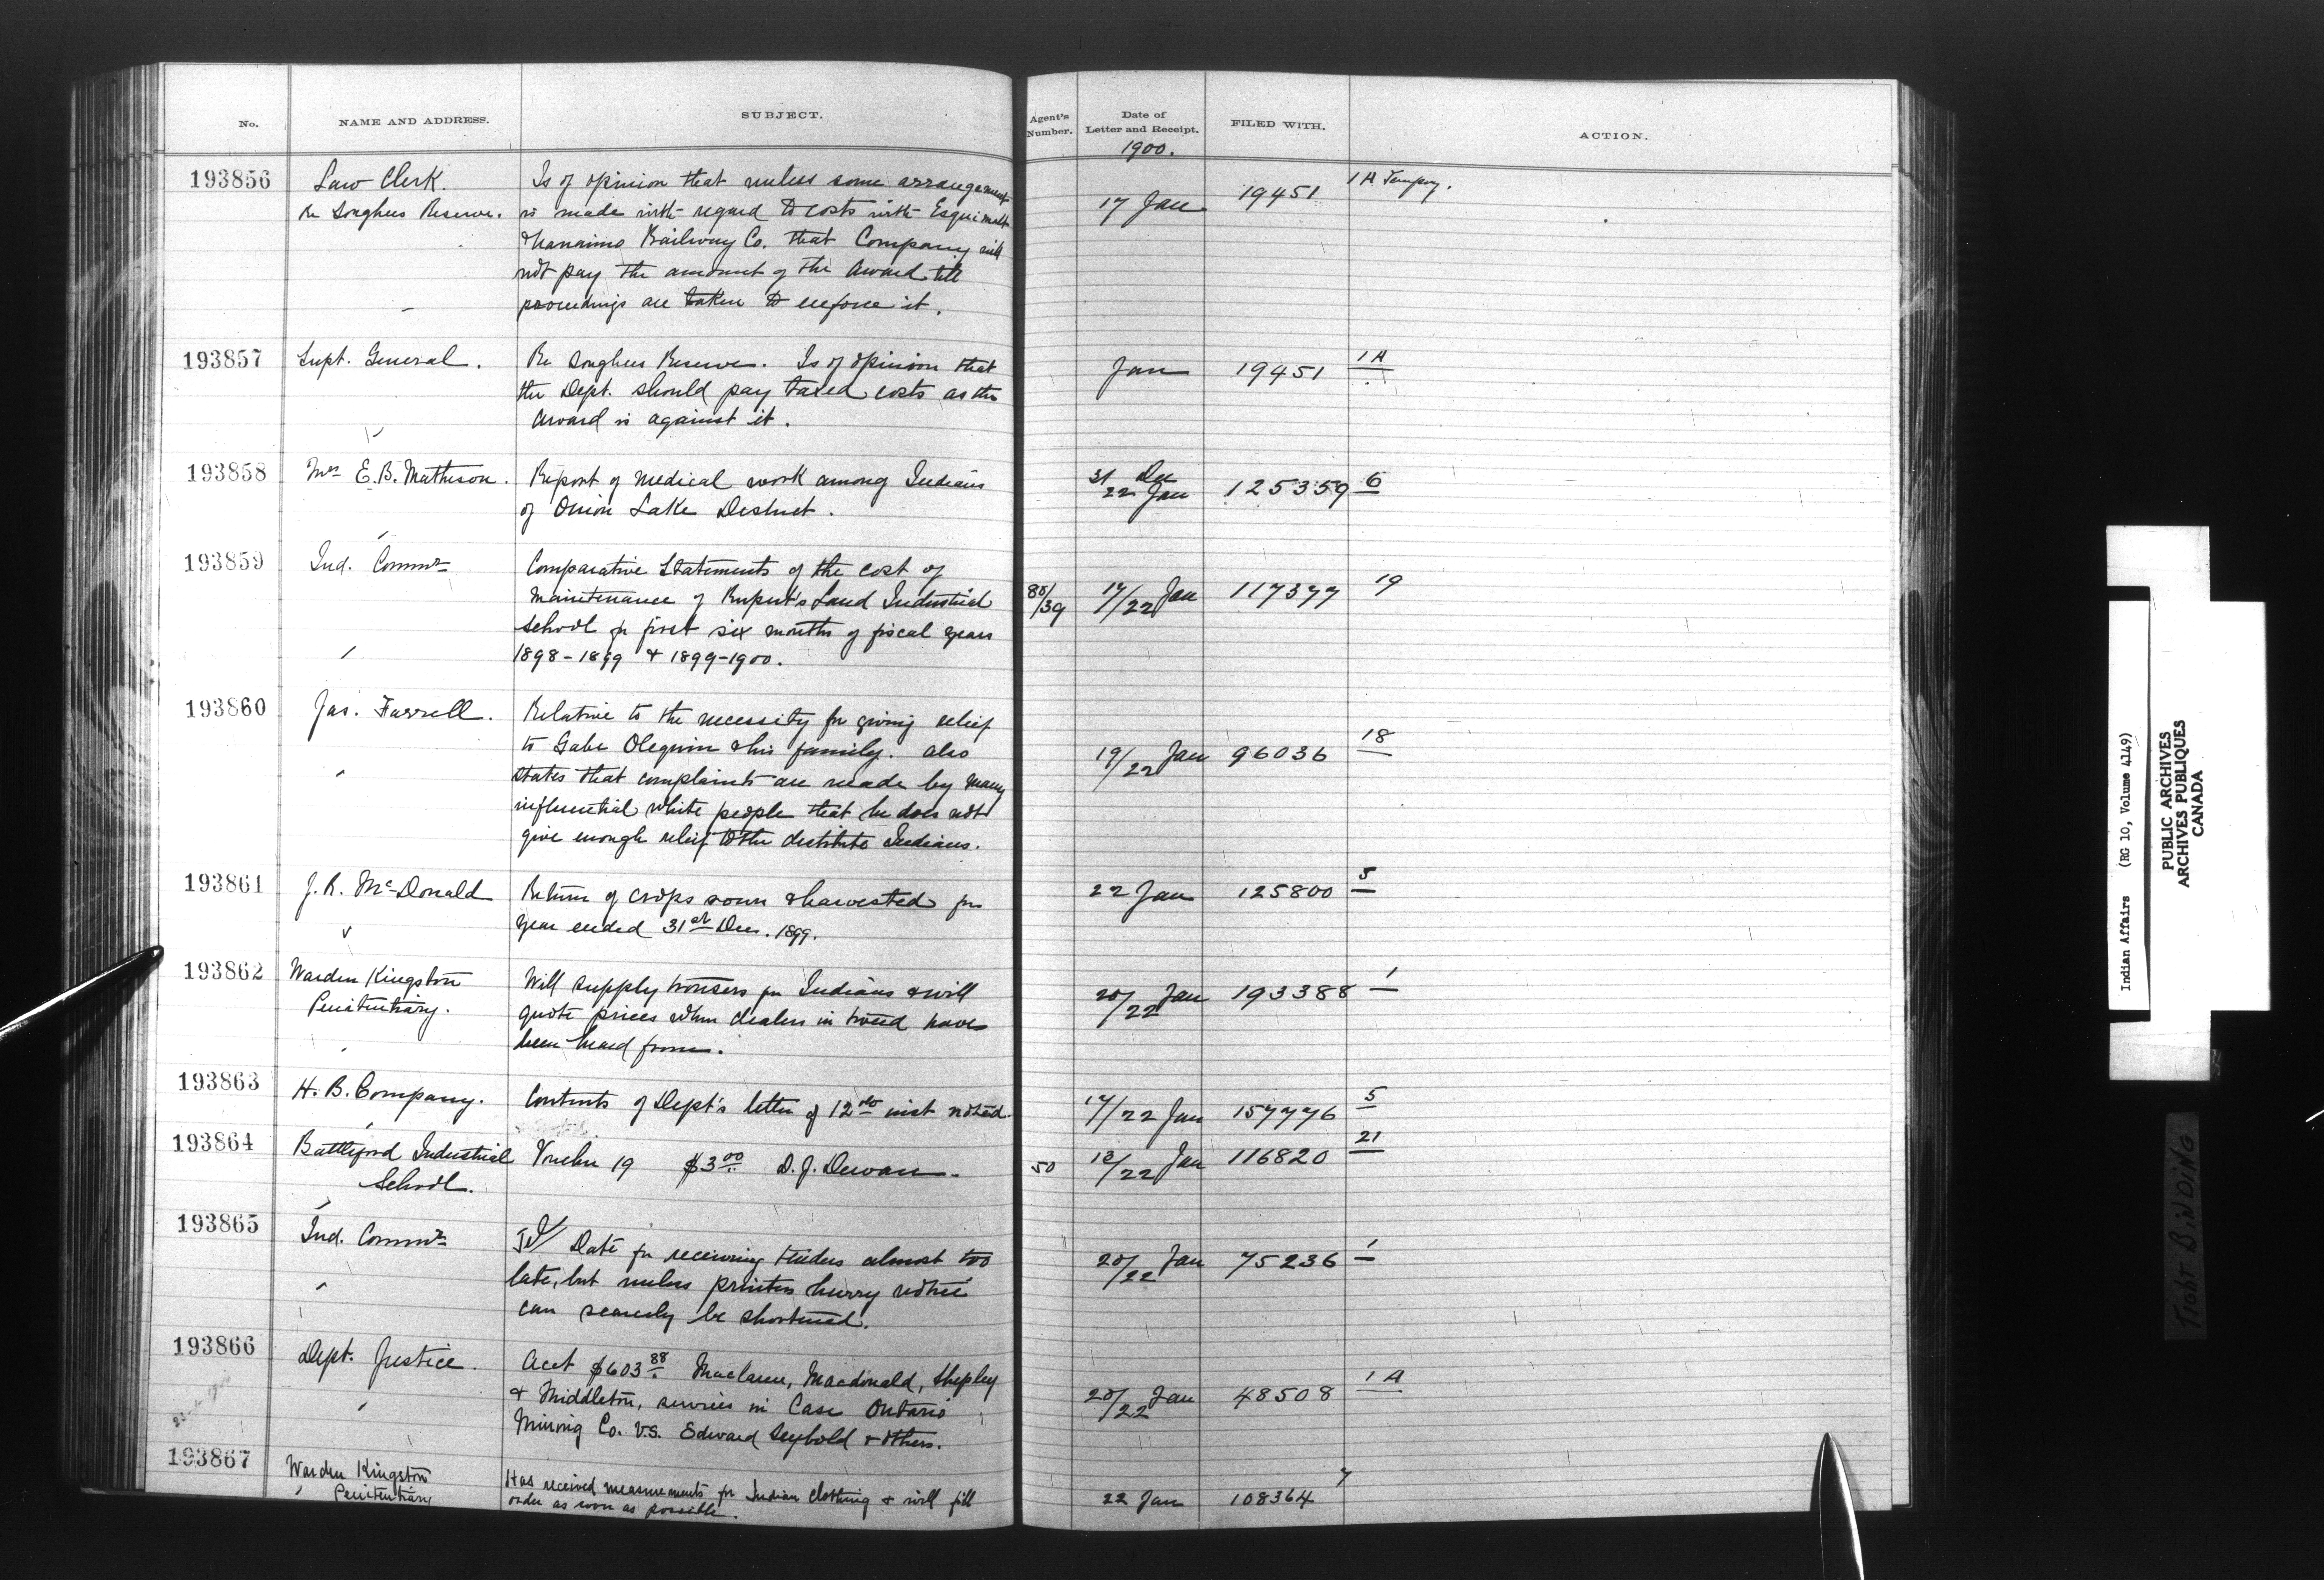 No.
NAME AND ADDRESS.
SUBJECT.
Agent's Number.
Date of Letter and Receipt.
1900.
FILED WITH.
ACTION.
193856
Law Clerk.
Re Songhees Reserve.
Is of opinion that unless some arrangement
is made with regard to costs with Esquimalt
& Nanaimo Railway Co. that Company will
not pay the amount of the Award till
proceedings are taken to enforce it.
17 Jan
19451
1 A Tempy.
193857
Supt. General.
Re Songhees Reserve. Is of opinion that
the Dept. should pay taxed costs as the
Award is against it.
Jan
19451
1 A
193858
Mrs E. B. Matheson.
Report of Medical work among Indians
of Onion Lake District.
31 Dec
22 Jan
125359
6
193859
Ind. Commr
Comparative Statements of the cost of
Maintenance of Rupert's Land Industrial
School for first six months of fiscal years
1898-1899 & 1899-1900.
80/39
17/22 Jan
117377
19
193860
Jas. Farrell.
Relative to the necessity for giving relief
to Gabe & his family. Also
states that complaints are made by many
influential white people that he does not
give enough relief to the destitute Indians.
19/22 Jan
96036
18
193861
J. R. McDonald
Return of crops sown & harvested for
year ended 31st Dec. 1899.
22 Jan
125800
5
193862
Warden Kingston
Penitentiary.
Will supply trousers for Indians & will
quote prices when dealers in tweed have
been heard from.
20/22 Jan
193388
1
193863
H. B. Company.
Contents of Dept's letter of 12th inst noted.
17/22 Jan
157776
5
193864
Battleford Industrial
School.
Voucher 19 $3.00 D. J. Dewan
50
13/22 Jan
116820
21
193865
Ind. Commr
Tel/ Date for receiving tenders almost too
late, but unless printers hurry notice
can scarcely be shortened.
20/22 Jan
75236
1
193866
Dept. Justice.
Acct $603.88 Maclaren, Macdonald, Shepley
& Middleton, services in Case Ontario
Mining Co. vs. Edward Seybold & others.
20/22 Jan
48508
1 A
193867
Warden Kingston
Penitentiary
Has received measurements for Indian clothing & will fill
order as soon as possible.
22 Jan
108364
7
Indian Affairs (RG 10, Volume 4149)
PUBLIC ARCHIVES
ARCHIVES PUBLIQUES
CANADA
TIGHT BINDING